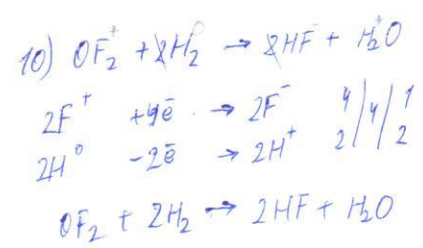 10) OF₂⁺ + 2H₂⁰ → 2HF⁻ + H₂⁺O
2F⁺ +4ē → 2F⁻ 4 | 4 | 1
2H⁰ -2ē → 2H⁺ 2 | | 2
OF₂ + 2H₂ → 2HF + H₂O